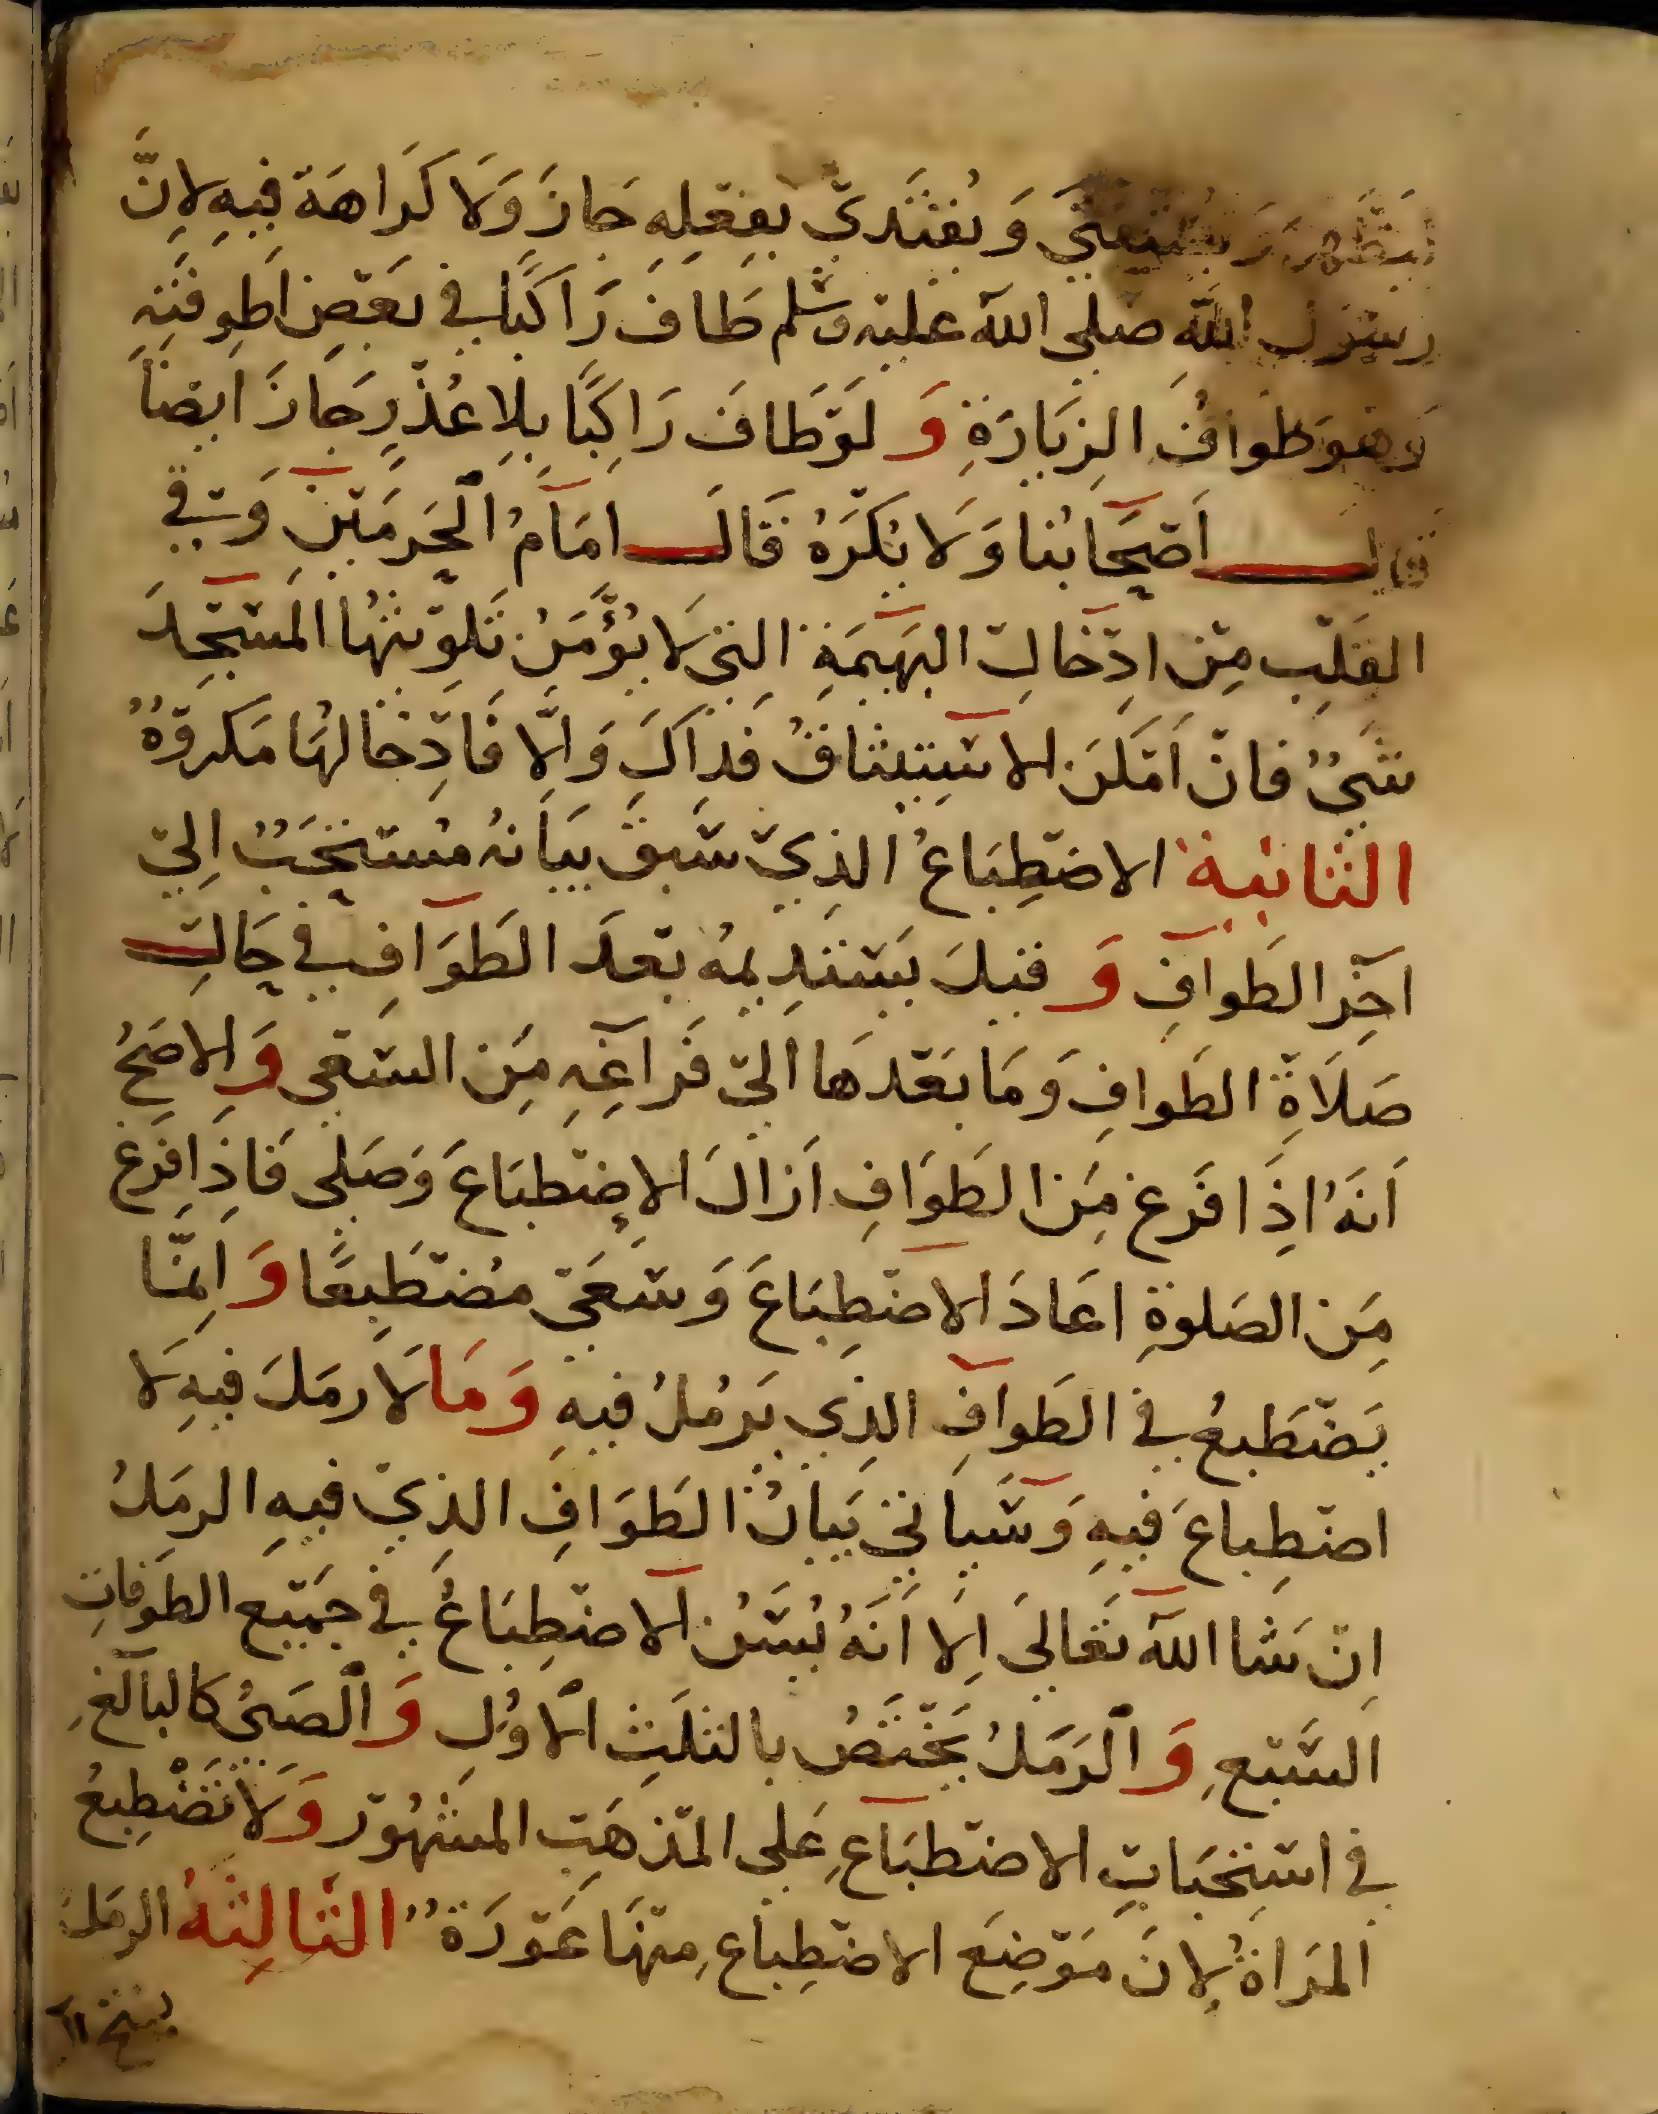 ليظهر ويستفتى ويقتدى بفعله جاز ولا كراهة فيه لان
رسول الله صلى الله عليه وسلم طاف راكبا في بعض اطوفته
وهو طواف الزيارة ولو طاف راكبا بلا عذر جاز ايضا
قال اصحابنا ولا يكره قال امام الحرمين وفي
القلب من ادخال البهيمة التي لا يؤمن تلويثها المسجد
شيء فان امكن الاستيثاق فذاك والا فادخالها مكروه
الثانية الاضطباع الذي سبق بيانه مستحب الى
اخر الطواف وقيل يستديمه بعد الطواف في حال
صلاة الطواف وما بعدها الى فراغه من السعي والاصح
انه اذا فرغ من الطواف ازال الاضطباع وصلى فاذا فرغ
من الصلوة اعاد الاضطباع وسعى مضطبعا وانما
يضطبع في الطواف الذي يرمل فيه وما لا رمل فيه لا
اضطباع فيه وسياتي بيان الطواف الذي فيه الرمل
ان شا الله تعالى الا انه يسن الاضطباع في جميع الطوفات
السبع والرمل يختص بالثلث الاول والصبي كالبالغ
في استحباب الاضطباع على المذهب المشهور ولا تضطبع
المراة لان موضع الاضطباع منها عورة الثالثة الرمل